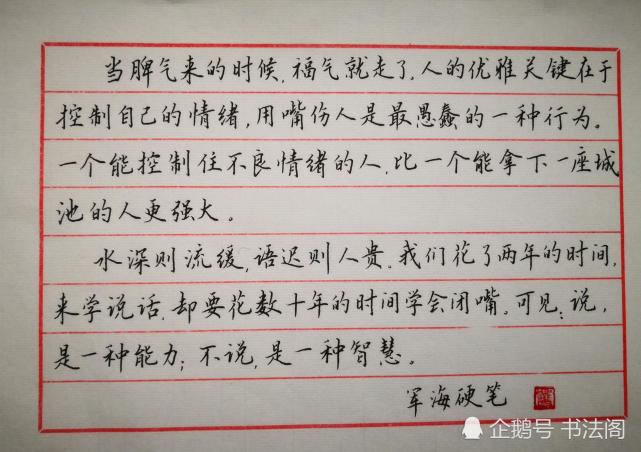 当脾气来的时候,福气就走了,人的优雅关键在于
控制自己的情绪,用嘴伤人是最愚蠢的一种行为。
一个能控制住不良情绪的人,比一个能拿下一座城
池的人更强大。
水深则流缓,语迟则人贵。我们花了两年的时间,
来学说话,却要花数十年的时间学会闭嘴。可见:说,
是一种能力;不说,是一种智慧。
军海硬笔
企鹅号 书法阁